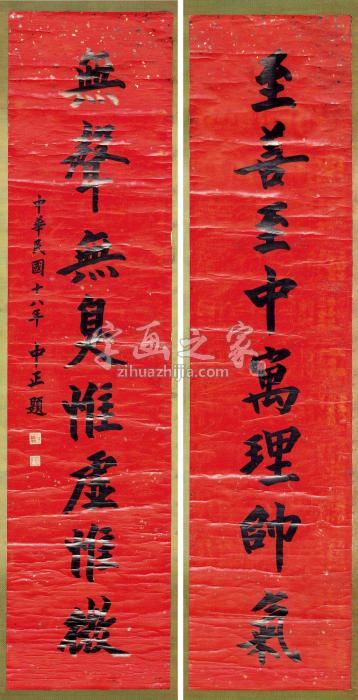 至善至中寓理帥氣
無聲無臭惟虛惟微
中華民國十八年 中正題
字画之家
zihuazhijia.com